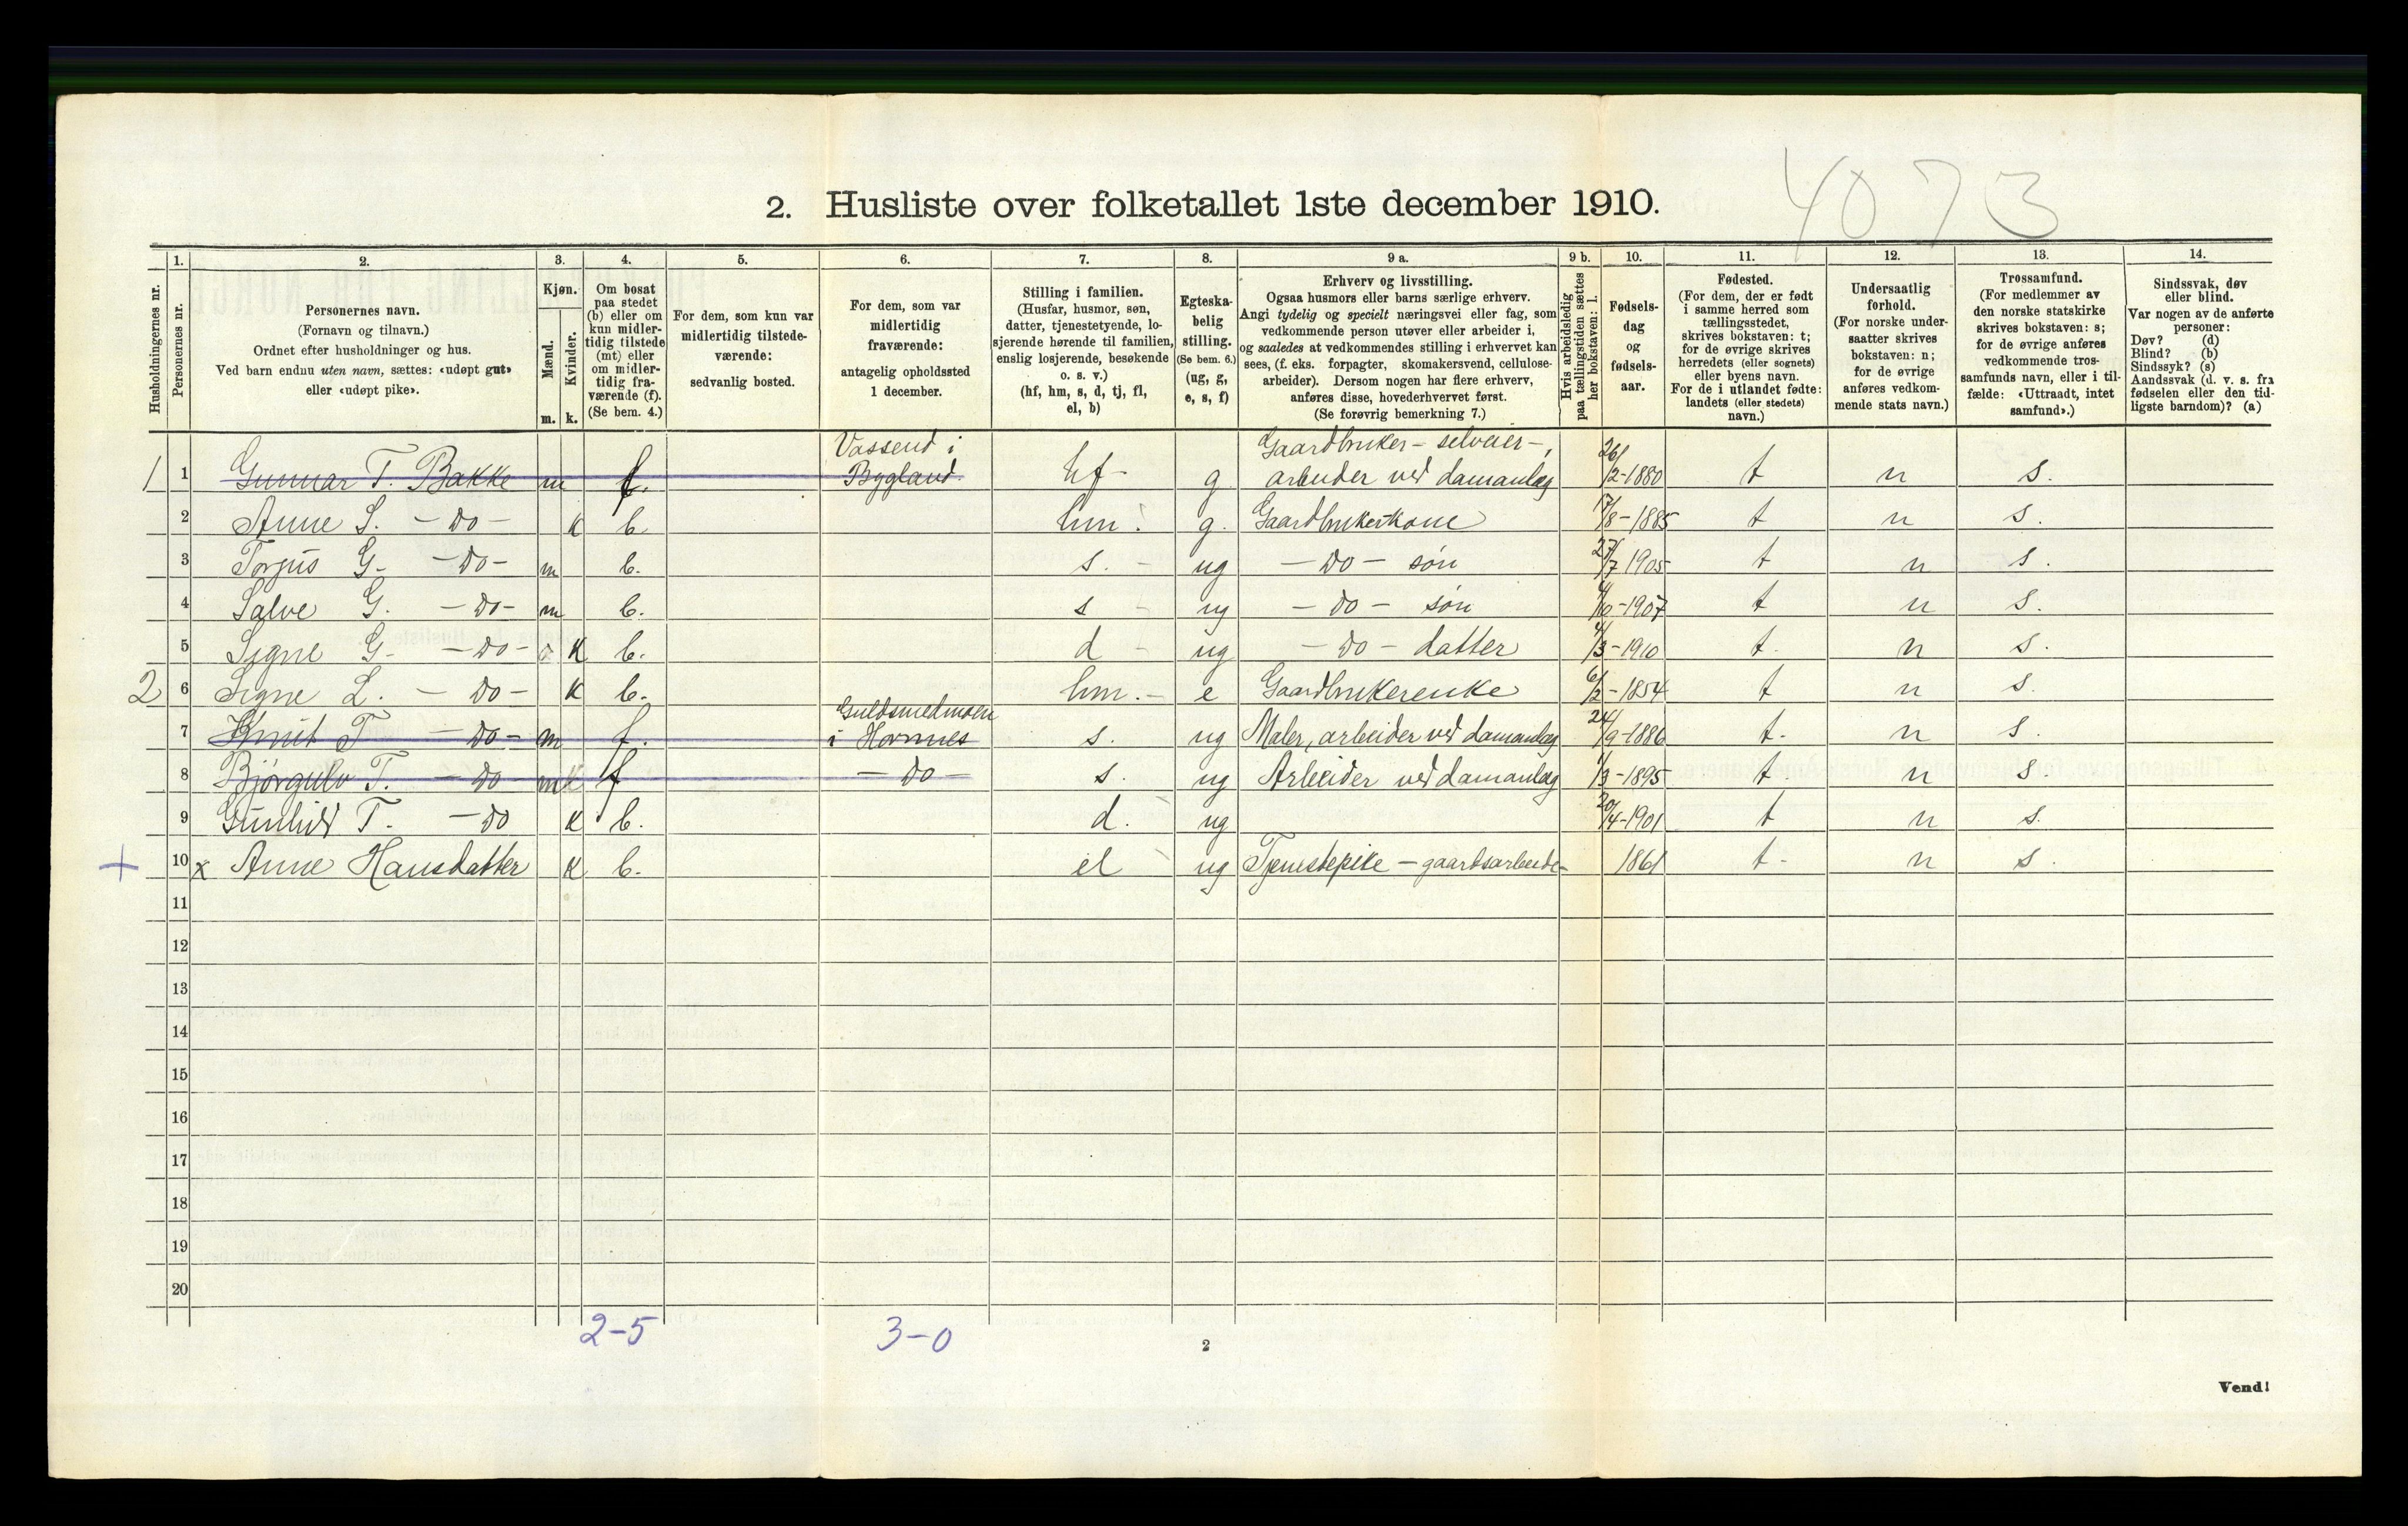 4073
2. Husliste over folketallet 1ste december 1910.
Husholdningernes nr.
1. Personernes nr.
2. Personernes navn.
(Fornavn og tilnavn.)
Ordnet efter husholdninger og hus.
Ved barn endnu uten navn, sættes: «udøpt gut»
eller «udøpt pike».
3. Kjøn.
Mænd. m.
Kvinder. k.
4. Om bosat
paa stedet
(b) eller om
kun midler-
tidig tilstede
(mt) eller
om midler-
tidig fra-
værende (f).
(Se bem. 4.)
5. For dem, som kun var
midlertidig tilstede-
værende:
sedvanlig bosted.
6. For dem, som var
midlertidig
fraværende:
antagelig opholdssted
1 december.
7. Stilling i familien.
(Husfar, husmor, søn,
datter, tjenestetyende, lo-
sjerende hørende til familien,
enslig losjerende, besøkende
o. s. v.)
(hf, hm, s, d, tj, fl,
el, b)
8. Egteska-
belig
stilling.
(Se bem. 6.)
(ug, g,
e, s, f)
9 a. Erhverv og livsstilling.
Ogsaa husmors eller barns særlige erhverv.
Angi tydelig og specielt næringsvei eller fag, som
vedkommende person utøver eller arbeider i,
og saaledes at vedkommendes stilling i erhvervet kan
sees, (f. eks. forpagter, skomakersvend, cellulose-
arbeider). Dersom nogen har flere erhverv,
anføres disse, hovederhvervet først.
(Se forøvrig bemerkning 7.)
9 b. Hvis arbeidsledig
paa tællingstiden sættes
her bokstaven: l.
10. Fødsels-
dag
og
fødsels-
aar.
11. Fødested.
(For dem, der er født
i samme herred som
tællingsstedet,
skrives bokstaven: t;
for de øvrige skrives
herredets (eller sognets)
eller byens navn.
For de i utlandet fødte:
landets (eller stedets)
navn.)
12. Undersaatlig
forhold.
(For norske under-
saatter skrives
bokstaven: n;
for de øvrige
anføres vedkom-
mende stats navn.)
13. Trossamfund.
(For medlemmer av
den norske statskirke
skrives bokstaven: s;
for de øvrige anføres
vedkommende tros-
samfunds navn, eller i til-
fælde: «Uttraadt, intet
samfund».)
14. Sindssvak, døv
eller blind.
Var nogen av de anførte
personer:
Døv? (d)
Blind? (b)
Sindssyk? (s)
Aandssvak (d. v. s. fra
fødselen eller den tid-
ligste barndom)? (a)
1 1 Gunnar T. Bakke m f. Vassend i Bygland hf- g Gaardbruker - selveier -, arbeider ved damanlæg 26/2-1880 t n s.
2 Anne S. - Do - K b hm. g. Gaardbrukerkone 17/8-1885 t n s.
3 Torjus G. - Do - m b. s. - ug - Do - søn 27/7 1905 t n s.
4 Salve G. - Do - m b. s - ug - Do - søn 4/10-1907 t n s.
5 Signe G. - Do - K b. d - ug - Do - datter 4/3-1910 t. n s.
2 6 Signe L. - Do - K b. hm. - e Gaardbrukerenke 6/2-1854 t n s.
7 Knut T - Do - m f. Guldsmedmoen i Hornnes s. ug Maler, arbeider ved damanlæg 24/9-1886 t. n s.
8 Bjørgulv T. - Do - m f - Do - s. ug Arbeider ved damanlæg 1/3-1895 t n s.
9 Gunhild T. - Do K b. d. ug 20/4-1901 t n s.
+ 10 x Anne Hansdatter K b. el ug Tjenestepike - gaardsarbeide- 1861 t- n s.
11
12
13
14
15
16
17
18
19
20
2-5 3-0
2
Vend!